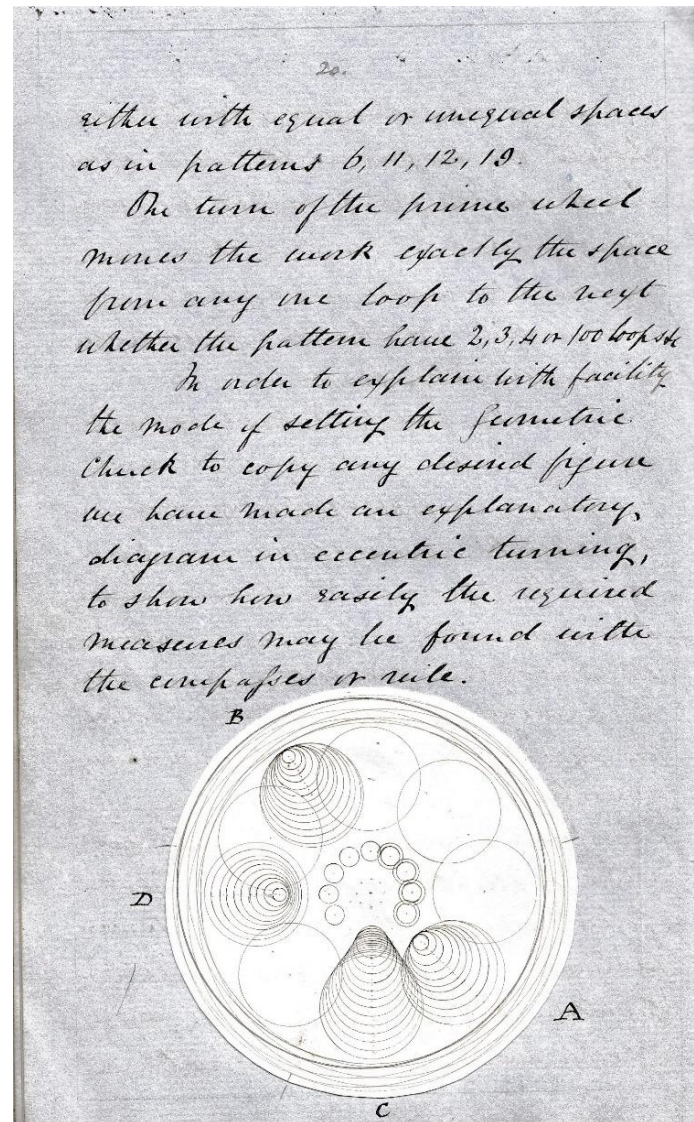 20.
either with equal or unequal spaces
as in patterns 6, 11, 12, 19.
The turn of the prime wheel
moves the work exactly the space
from any one loop to the next
whether the pattern have 2, 3, 4 or 100 loops &c
In order to explain with facility
the mode of setting the Geometric
Chuck to copy any desired figure
we have made an explanatory
diagram in eccentric turning,
to show how easily the required
measures may be found with
the compasses or rule.
B
D
A
C